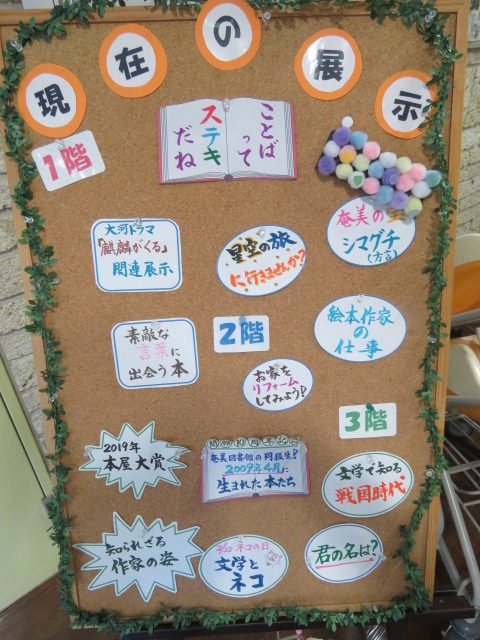 現在の展示
1階
ことば
って
ステキ
だね
大河ドラマ
「麒麟がくる」
関連展示
星空の旅
に行きませんか?
奄美の
シマグチ
(方言)
素敵な
言葉に
出会う本
2階
絵本作家
の
仕事
お家を
リフォーム
してみよう!
3階
2019年
本屋大賞
奄美図書館の同級生!
2009年4月に
生まれた本たち
文学で知る
戦国時代
知られざる
作家の姿
2/22 ネコの日
文学と
ネコ
君の名は?